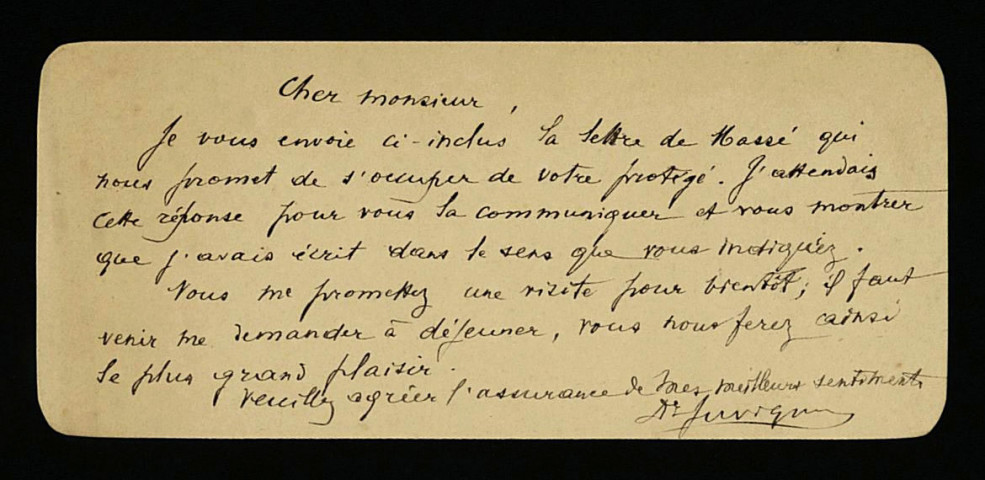 Cher monsieur,
Je vous envoie ci-inclus la lettre de Massé qui
nous promet de s'occuper de votre protégé. J'attendais
cette réponse pour vous la communiquer et vous montrer
que j'avais écrit dans le sens que vous indiquiez.
Vous me promettez une visite pour bientôt; il faut
venir me demander à déjeuner, vous nous ferez ainsi
le plus grand plaisir.
Veuillez agréer l'assurance de mes meilleurs sentiments
Dr